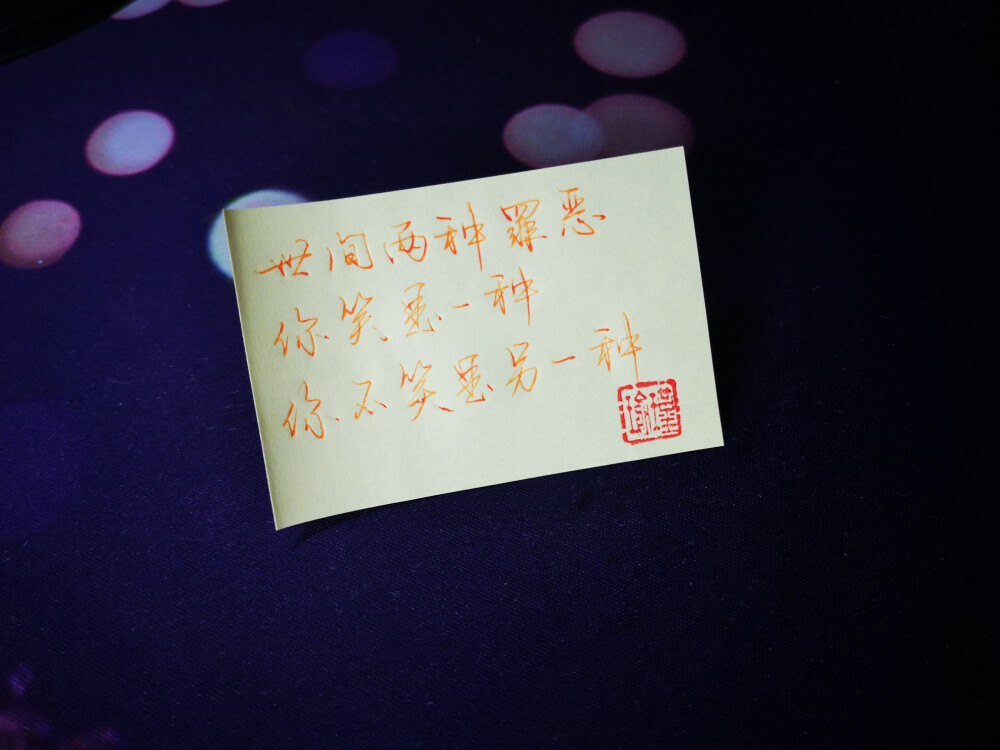 世间两种罪恶
你笑是一种
你不笑是另一种